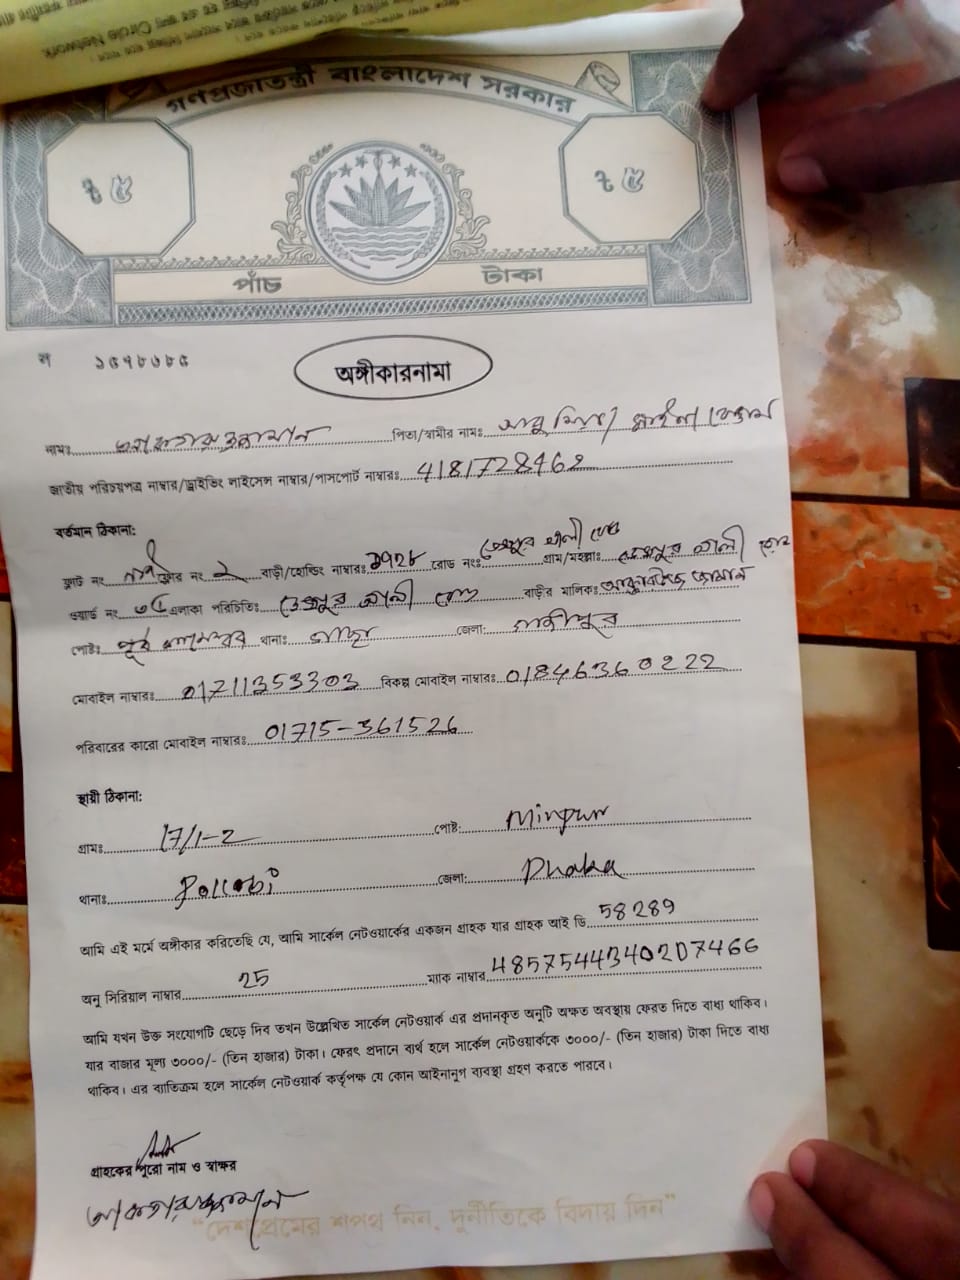 গণপ্রজাতন্ত্রী বাংলাদেশ সরকার
৳ ৫ ৳ ৫
পাঁচ টাকা
অঙ্গীকারনামা
নামঃ পিতা/স্বামীর নামঃ
জাতীয় পরিচয়পত্র নাম্বার/ড্রাইভিং লাইসেন্স নাম্বার/পাসপোর্ট নাম্বারঃ 4181728462
বর্তমান ঠিকানা:
ফ্ল্যাট নং ফ্লোর নং ২ বাড়ী/হোল্ডিং নাম্বারঃ রোড নংঃ গ্রাম/মহল্লাঃ
ওয়ার্ড নং ৩৫ এলাকা পরিচিতিঃ বাড়ীর মালিকঃ
পোষ্টঃ পূর্ব থানাঃ গাছা জেলা: গাজীপুর
মোবাইল নাম্বারঃ 01711353303 বিকল্প মোবাইল নাম্বারঃ 01846360222
পরিবারের কারো মোবাইল নাম্বারঃ 01715-361526
স্থায়ী ঠিকানা:
গ্রামঃ 17/1-2 পোষ্ট: Mirpur
থানাঃ Pollobi জেলা: Dhaka
আমি এই মর্মে অঙ্গীকার করিতেছি যে, আমি সার্কেল নেটওয়ার্কের একজন গ্রাহক যার গ্রাহক আই ডি 58289
অনু সিরিয়াল নাম্বার 25 ম্যাক নাম্বার 48575443402D7466
আমি যখন উক্ত সংযোগটি ছেড়ে দিব তখন উল্লেখিত সার্কেল নেটওয়ার্ক এর প্রদানকৃত অনুটি অক্ষত অবস্থায় ফেরত দিতে বাধ্য থাকিব।
যার বাজার মূল্য ৩০০০/- (তিন হাজার) টাকা। ফেরৎ প্রদানে ব্যর্থ হলে সার্কেল নেটওয়ার্ককে ৩০০০/- (তিন হাজার) টাকা দিতে বাধ্য
থাকিব। এর ব্যতিক্রম হলে সার্কেল নেটওয়ার্ক কর্তৃপক্ষ যে কোন আইনানুগ ব্যবস্থা গ্রহণ করতে পারবে।
গ্রাহকের পুরো নাম ও স্বাক্ষর
"দেশপ্রেমের শপথ নিন, দুর্নীতিকে বিদায় দিন"